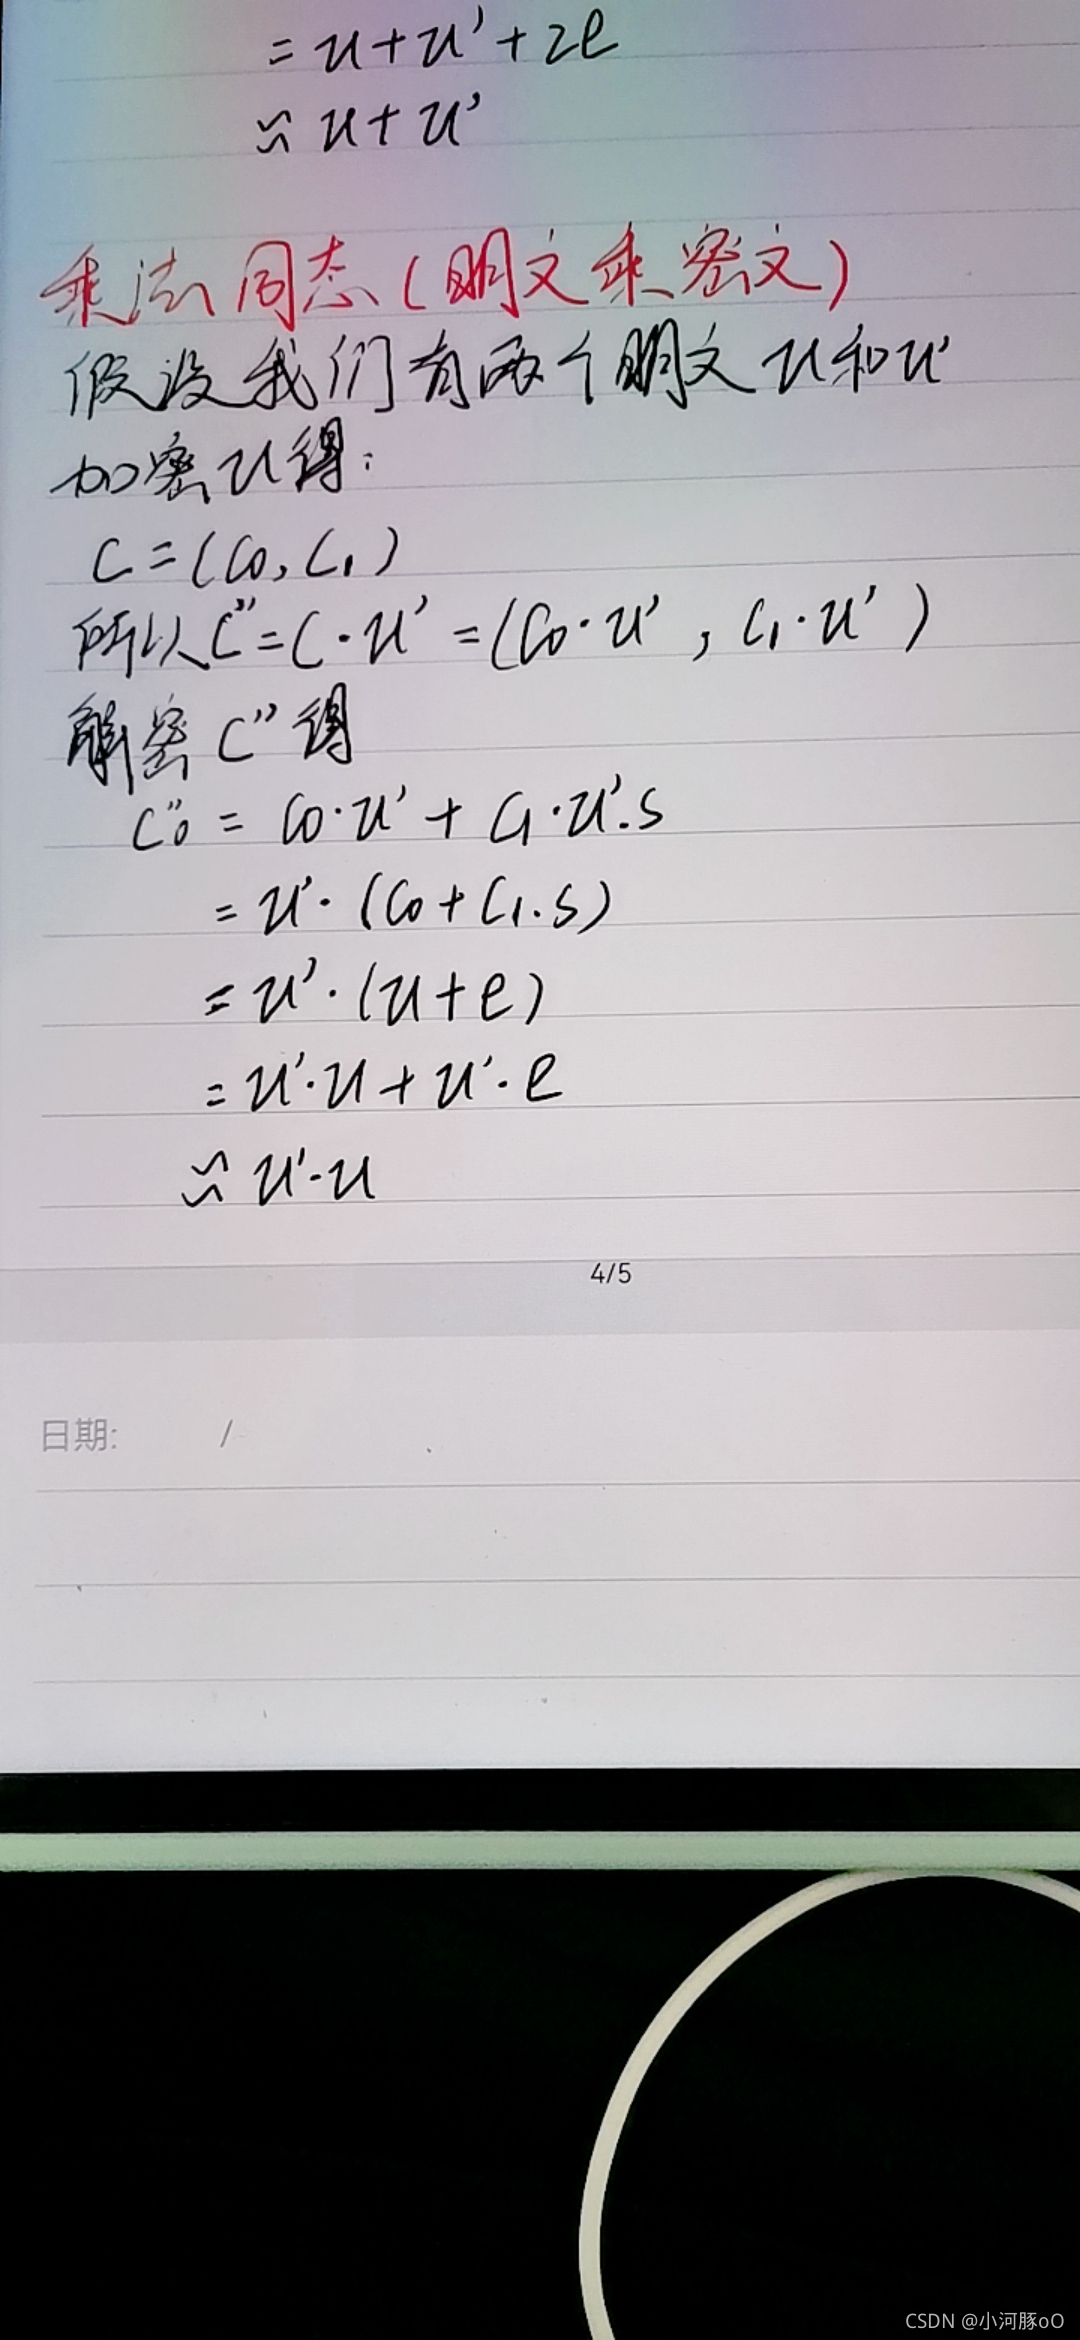 = u + u' + 2e
≈ u + u'
乘法同态(明文乘密文)
假设我们有两个明文 u和u'
加密u得:
C = (C₀, C₁)
所以C'' = C · u' = (C₀ · u' , C₁ · u')
解密 C'' 得
C''₀ = C₀ · u' + C₁ · u' · s
= u' · (C₀ + C₁ · s)
= u' · (u + e)
= u' · u + u' · e
≈ u' · u
4/5
日期: /
CSDN @小河豚oO